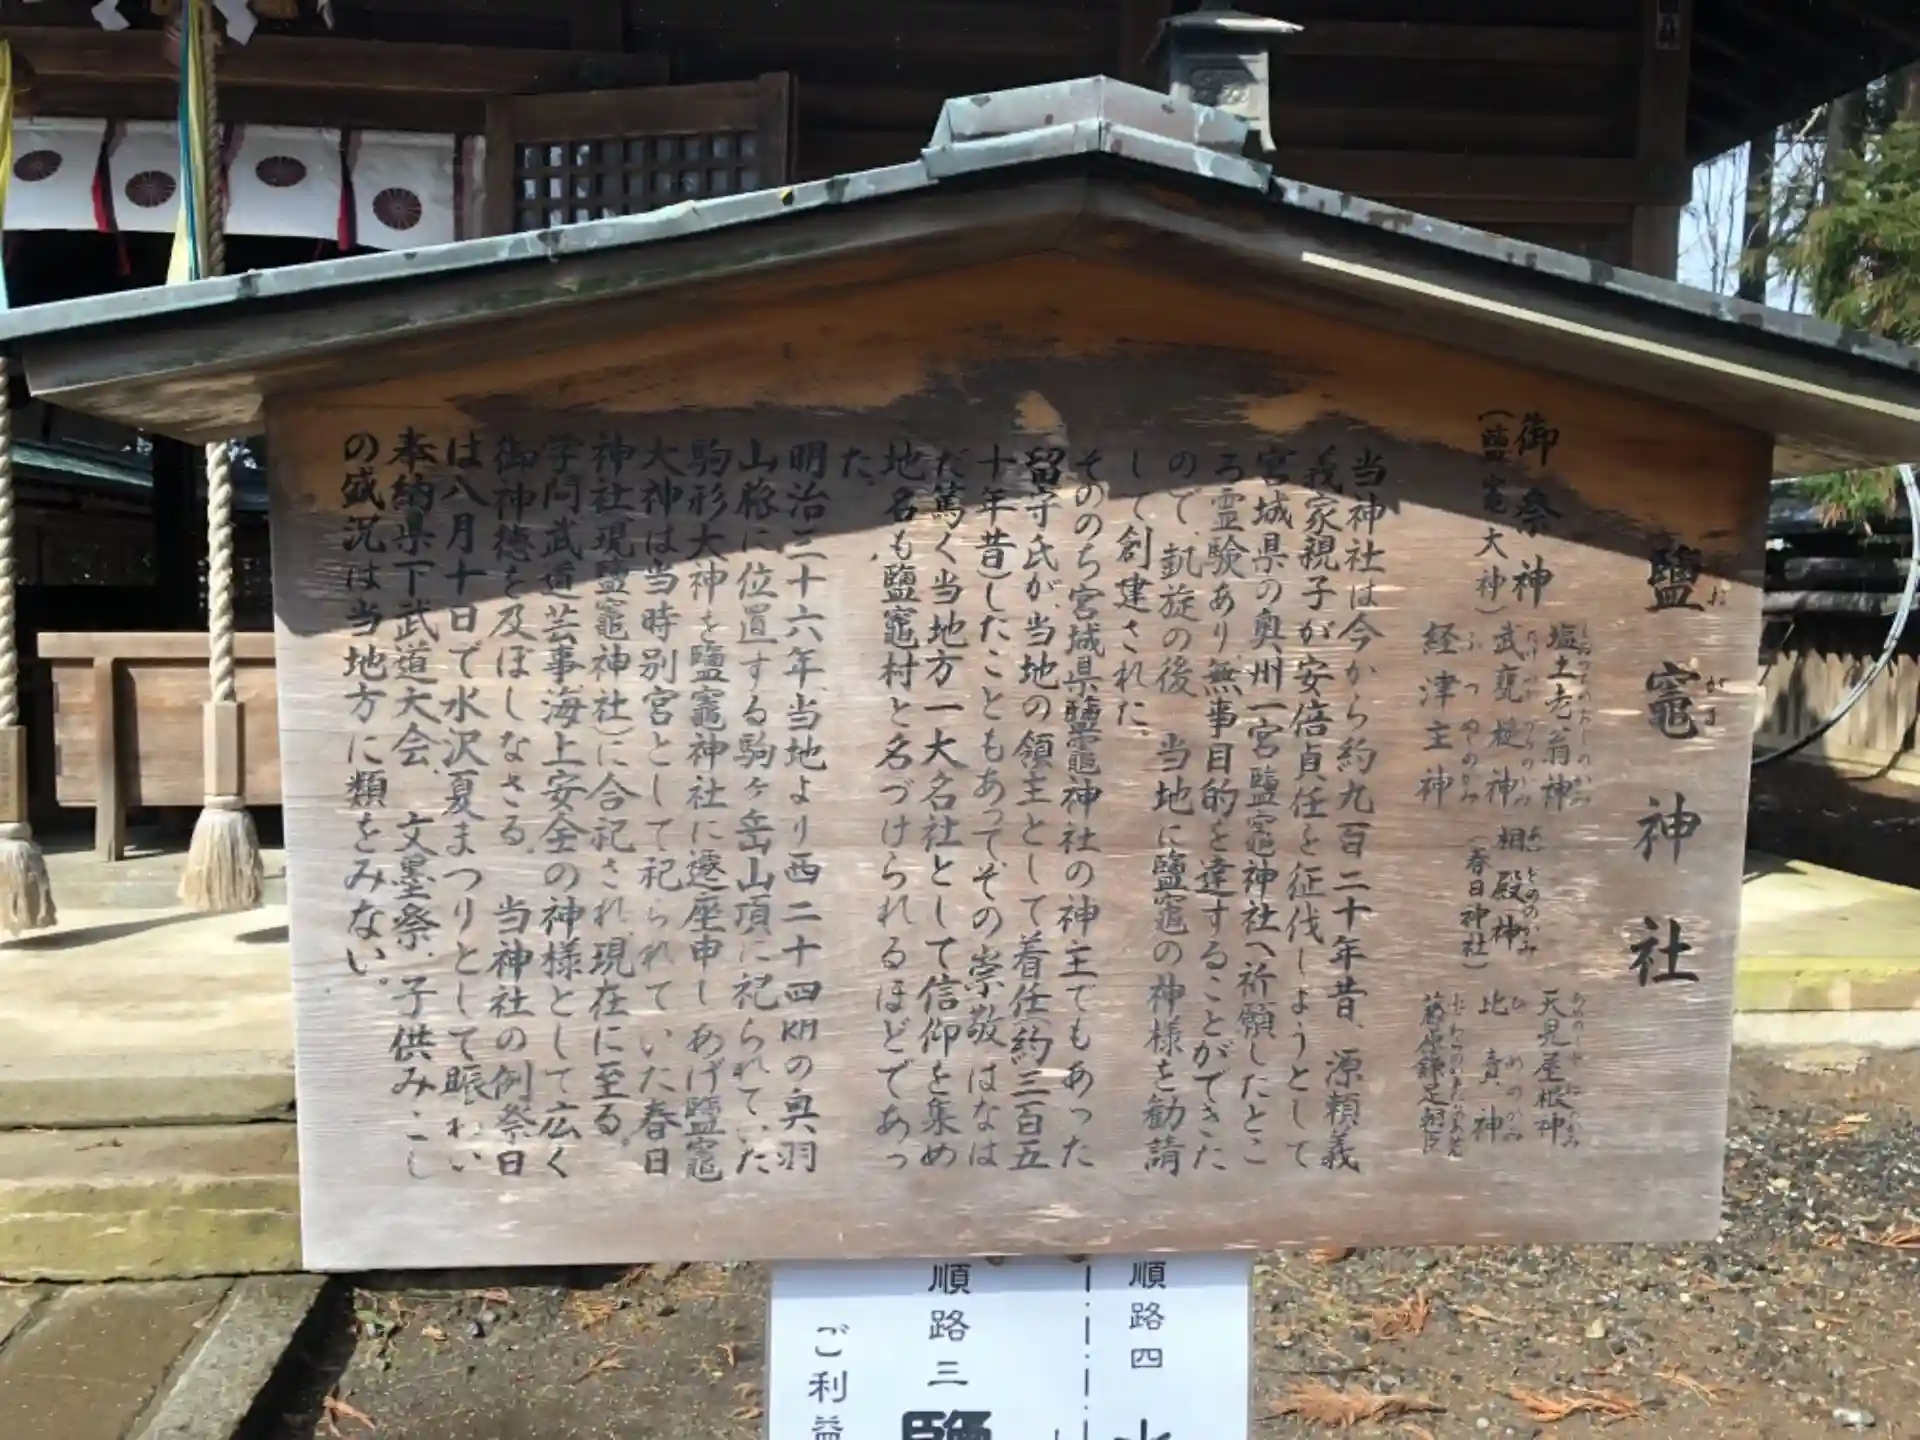 鹽竈神社
しおがま
御祭神
(鹽竈大神)
塩土老翁神
武甕槌神
経津主神
相殿神
(春日神社)
天児屋根神
比賣神
藤原鎌足朝臣
当神社は今から約九百二十年昔、源頼義
義家親子が安倍貞任を征伐しようとして
宮城県の奥州一宮鹽竈神社へ祈願したとこ
ろ霊験あり、無事目的を達することができた
ので、凱旋の後、当地に鹽竈の神様を勧請
して創建された。
そののち宮城県鹽竈神社の神主でもあった
留守氏が、当地の領主として着任(約三百五
十年昔)したこともあって、その崇敬はなは
だ篤く当地方一大名社として信仰を集め
地名も、鹽竈村と名づけられるほどであっ
た。
明治三十六年、当地より西二十四KMの奥羽
山脈に位置する駒ヶ岳山頂に祀られていた
駒形大神を鹽竈神社に遷座申しあげ鹽竈
大神は当時別宮として祀られていた春日
神社(現鹽竈神社)に合祀され、現在に至る。
学問武道芸事海上安全の神様として広く
御神徳を及ぼしなさる。 当神社の例祭日
は八月十日で水沢夏まつりとして賑わい
奉納県下武道大会、文墨祭、子供みこし
の盛況は当地方に類をみない。
順路四
順路三
鹽
ご利益